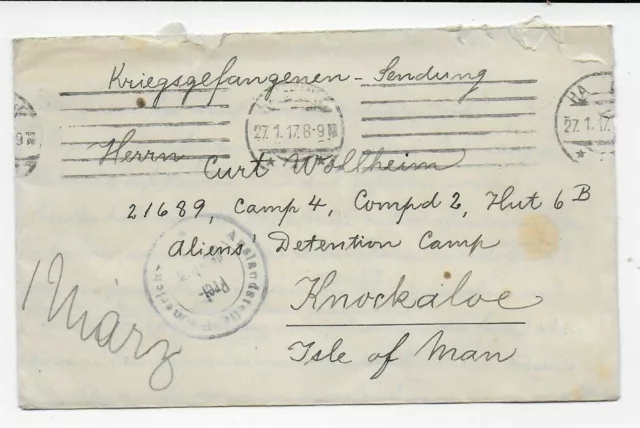 Kriegsgefangenen-Sendung
HA
27.1.17.8-9N
27.1.17.
9N
Herrn
Curt Wollheim
21689, Camp 4, Compd 2, Hut 6B
Aliens' Detention Camp
Knockaloe
Isle of Man
Auslandstelle Emmerich
März